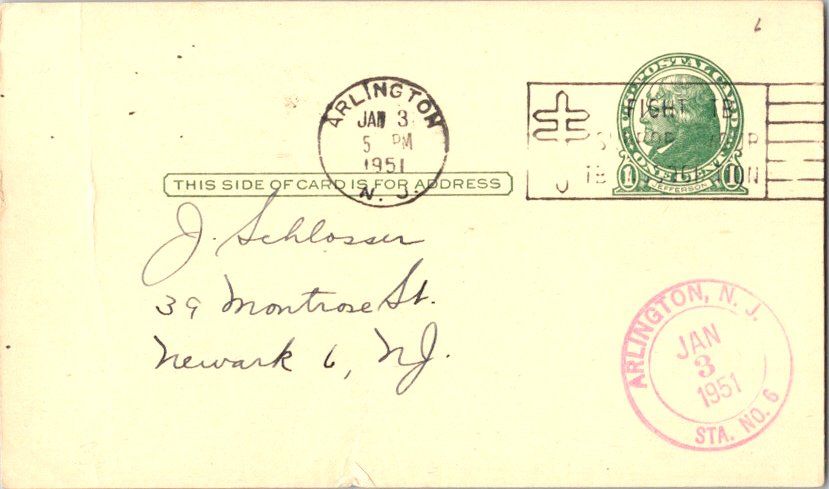 6
ARLINGTON
JAN 3
5 PM
1951
N. J.
U.S. POSTAL CARD
ONE CENT
1 JEFFERSON 1
FIGHT TB
THIS SIDE OF CARD IS FOR ADDRESS
J. Schlosser
39 Montrose St.
Newark 6, NJ.
ARLINGTON, N. J.
JAN
3
1951
STA. NO. 6